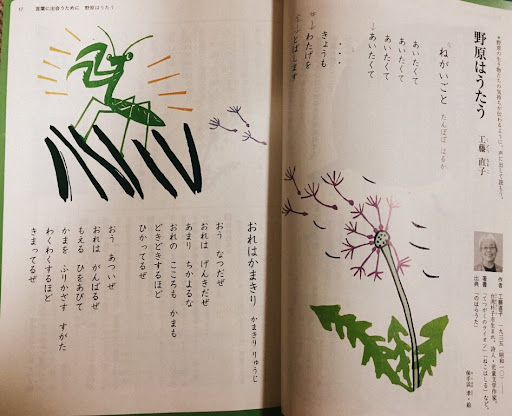 野原はうたう
工藤 直子
◆野原の生き物たちの気持ちが伝わるように、声に出して読もう。
ねがいごと たんぽぽ はるか
あいたくて
あいたくて
あいたくて
あいたくて
・・・
きょうも
わたげを
とばします
作者 工藤直子
著書 「てつがくのライオン」「ねこはしる」など。
出典 「のはらうた」
保手浜 孝・絵
17 言葉に出会うために 野原はうたう
おれはかまきり かまきり りゅうじ
おう なつだぜ
おれは げんきだぜ
あまり ちかよるな
おれの こころも かまも
どきどきするほど
ひかってるぜ
おう あついぜ
おれは がんばるぜ
もえる ひをあびて
かまを ふりかざす すがた
わくわくするほど
きまってるぜ